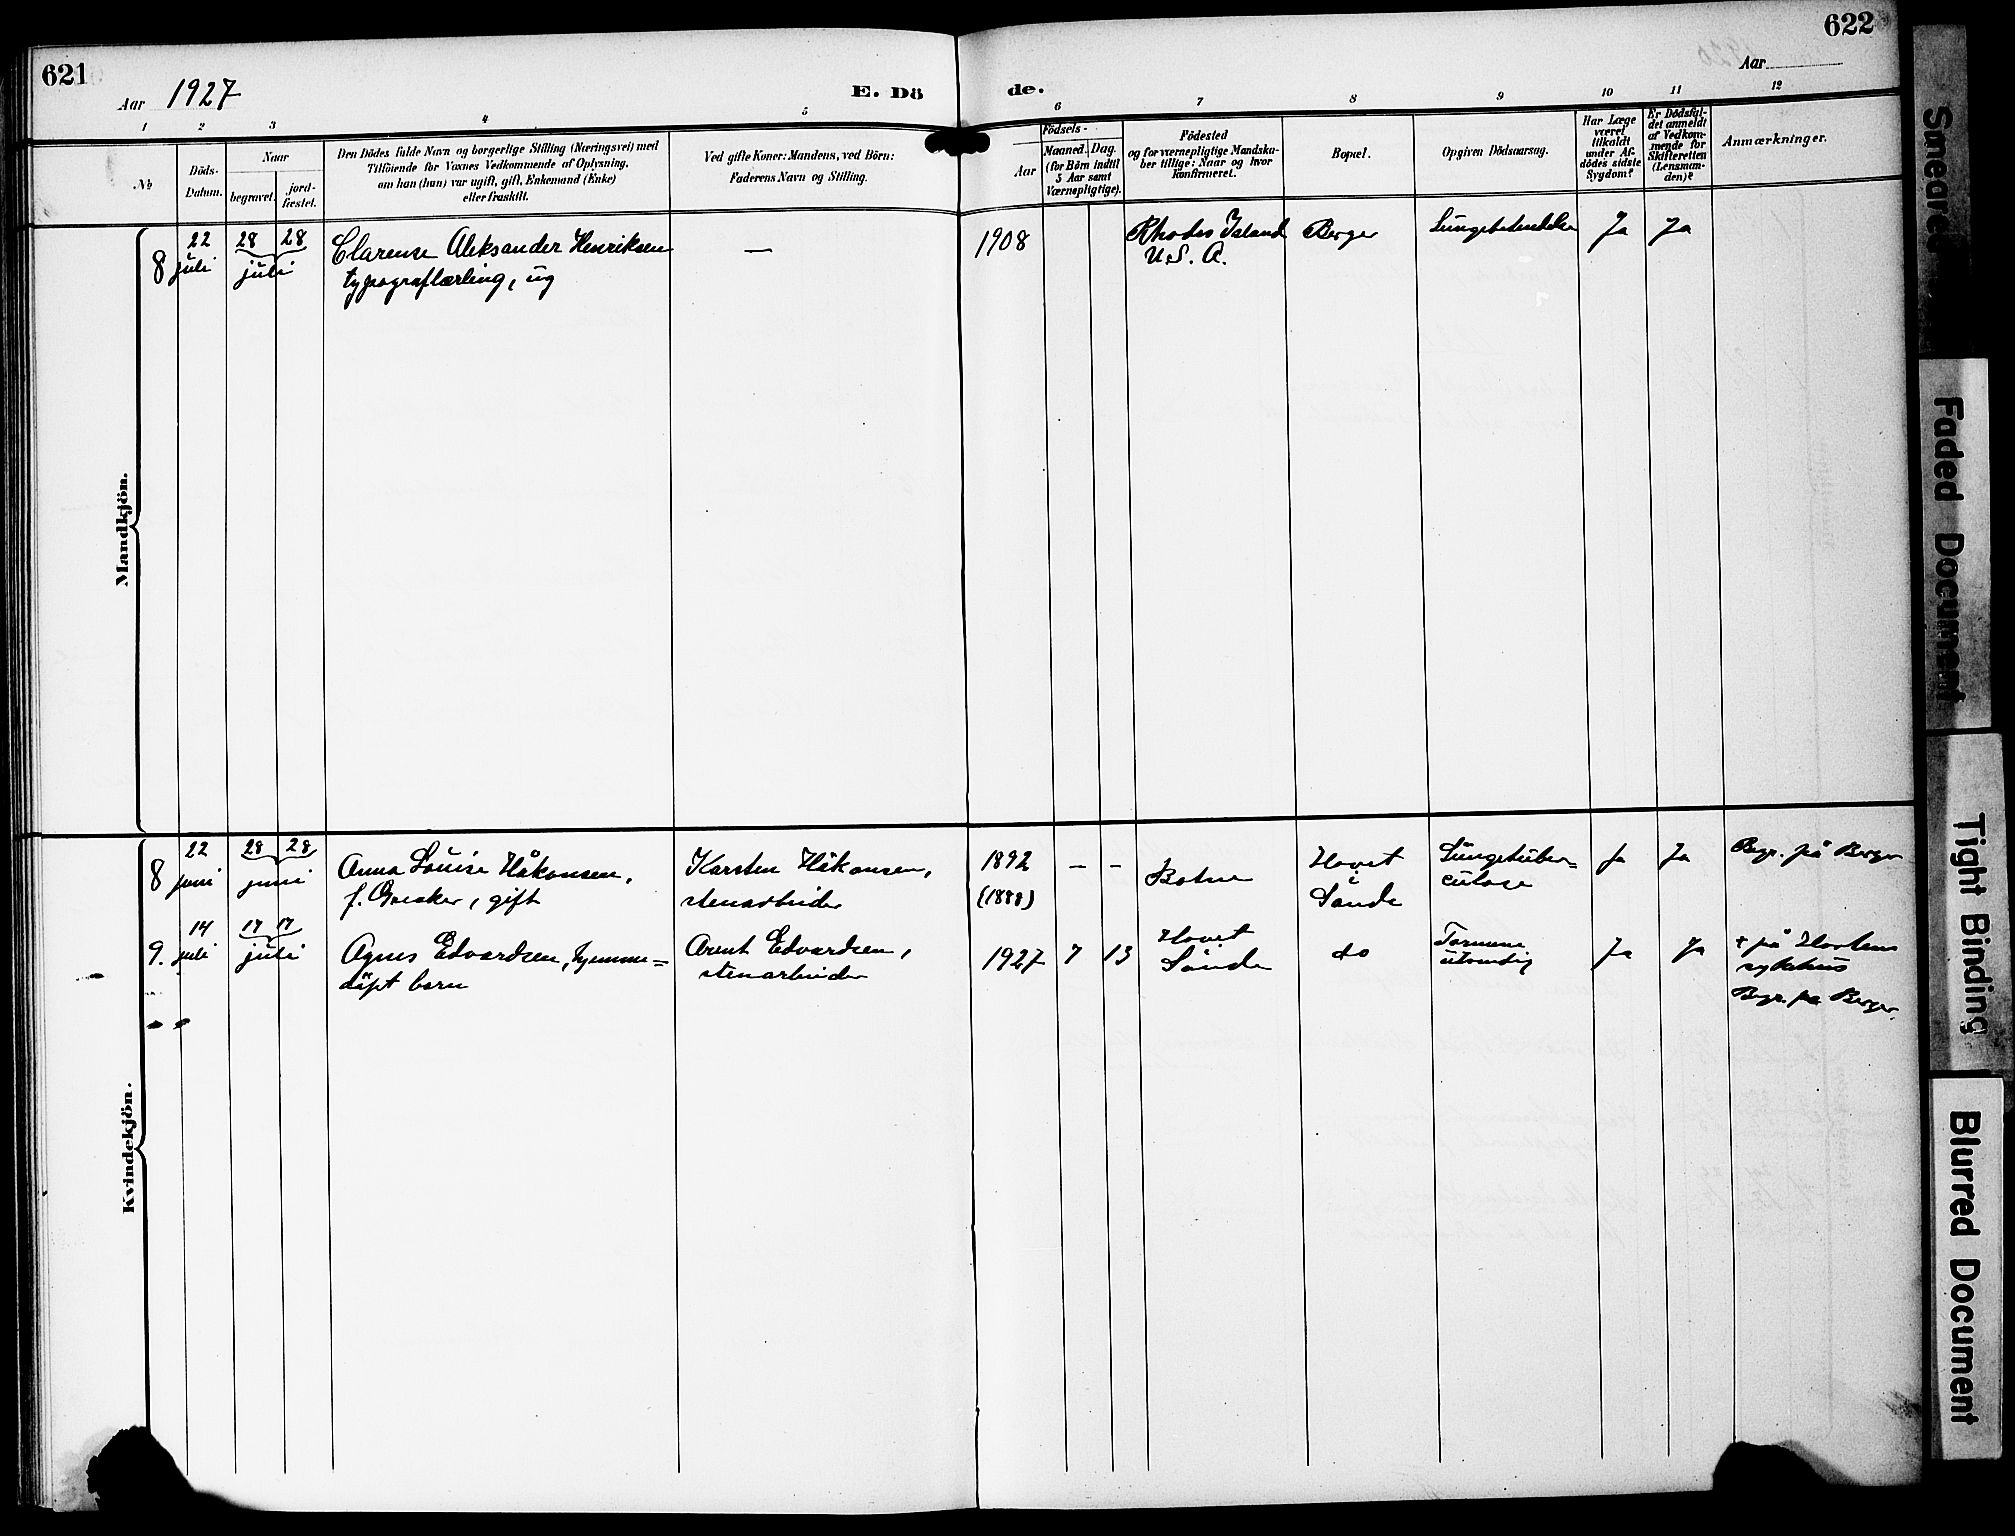 621
622
Aar 1927
E. Dö
de.
Aar
1 2 3 4 5 6 7 8 9 10 11 12
No
Döds-
Datum.
Naar
begravet.
jord-
fæstet.
Den Dödes fulde Navn og borgerlige Stilling (Næringsvei) med
Tilföiende for Voxnes Vedkommende af Oplysning.
om han (hun) var ugift, gift, Enkemand (Enke)
eller fraskilt.
Ved gifte Koner: Mandens, ved Börn:
Faderens Navn og Stilling.
Födsels-
Aar
Maaned. Dag.
(for Börn indtil
5 Aar samt
Værnepligtige).
Födested
og for værnepligtige Mandska-
ber tillige: Naar og hvor
konfirmeret.
Bopæl.
Opgiven Dödsaarsag.
Har Læge
været
tilkaldt
under Af-
dödes sidste
Sygdom?
Er Dödsfal-
det anmeldt
af Vedkom-
mende for
Skifteretten
(Lensman-
den)?
Anmærkninger.
Mandkjön.
8
22
juli
28 28
juli
Clarense Aleksander Henriksen
typograflærling, ug
—
1908
Rhodes Island
U.S.A.
Berger
Ja
Ja
Kvindekjön.
8
22
juni
28 28
juni
Anna Louise Håkonsen,
f. gift
Karsten Håkonsen,
stenarbeider
1892
(1888)
– –
Botne
Hovet
Sande
Lungetuber=
culose
Ja
Ja
Begr. på Berger
9.
14
juli
17 17
juli
Agnes Edvardsen, hjemme=
döpt barn
Arent Edvardsen,
stenarbeider
1927 7 13
Hovet
Sande
do
Ja
Ja
+ på Hortens
sykehus
Begr. på Berger.
Smeared
Faded Document
Tight Binding
Blurred Document